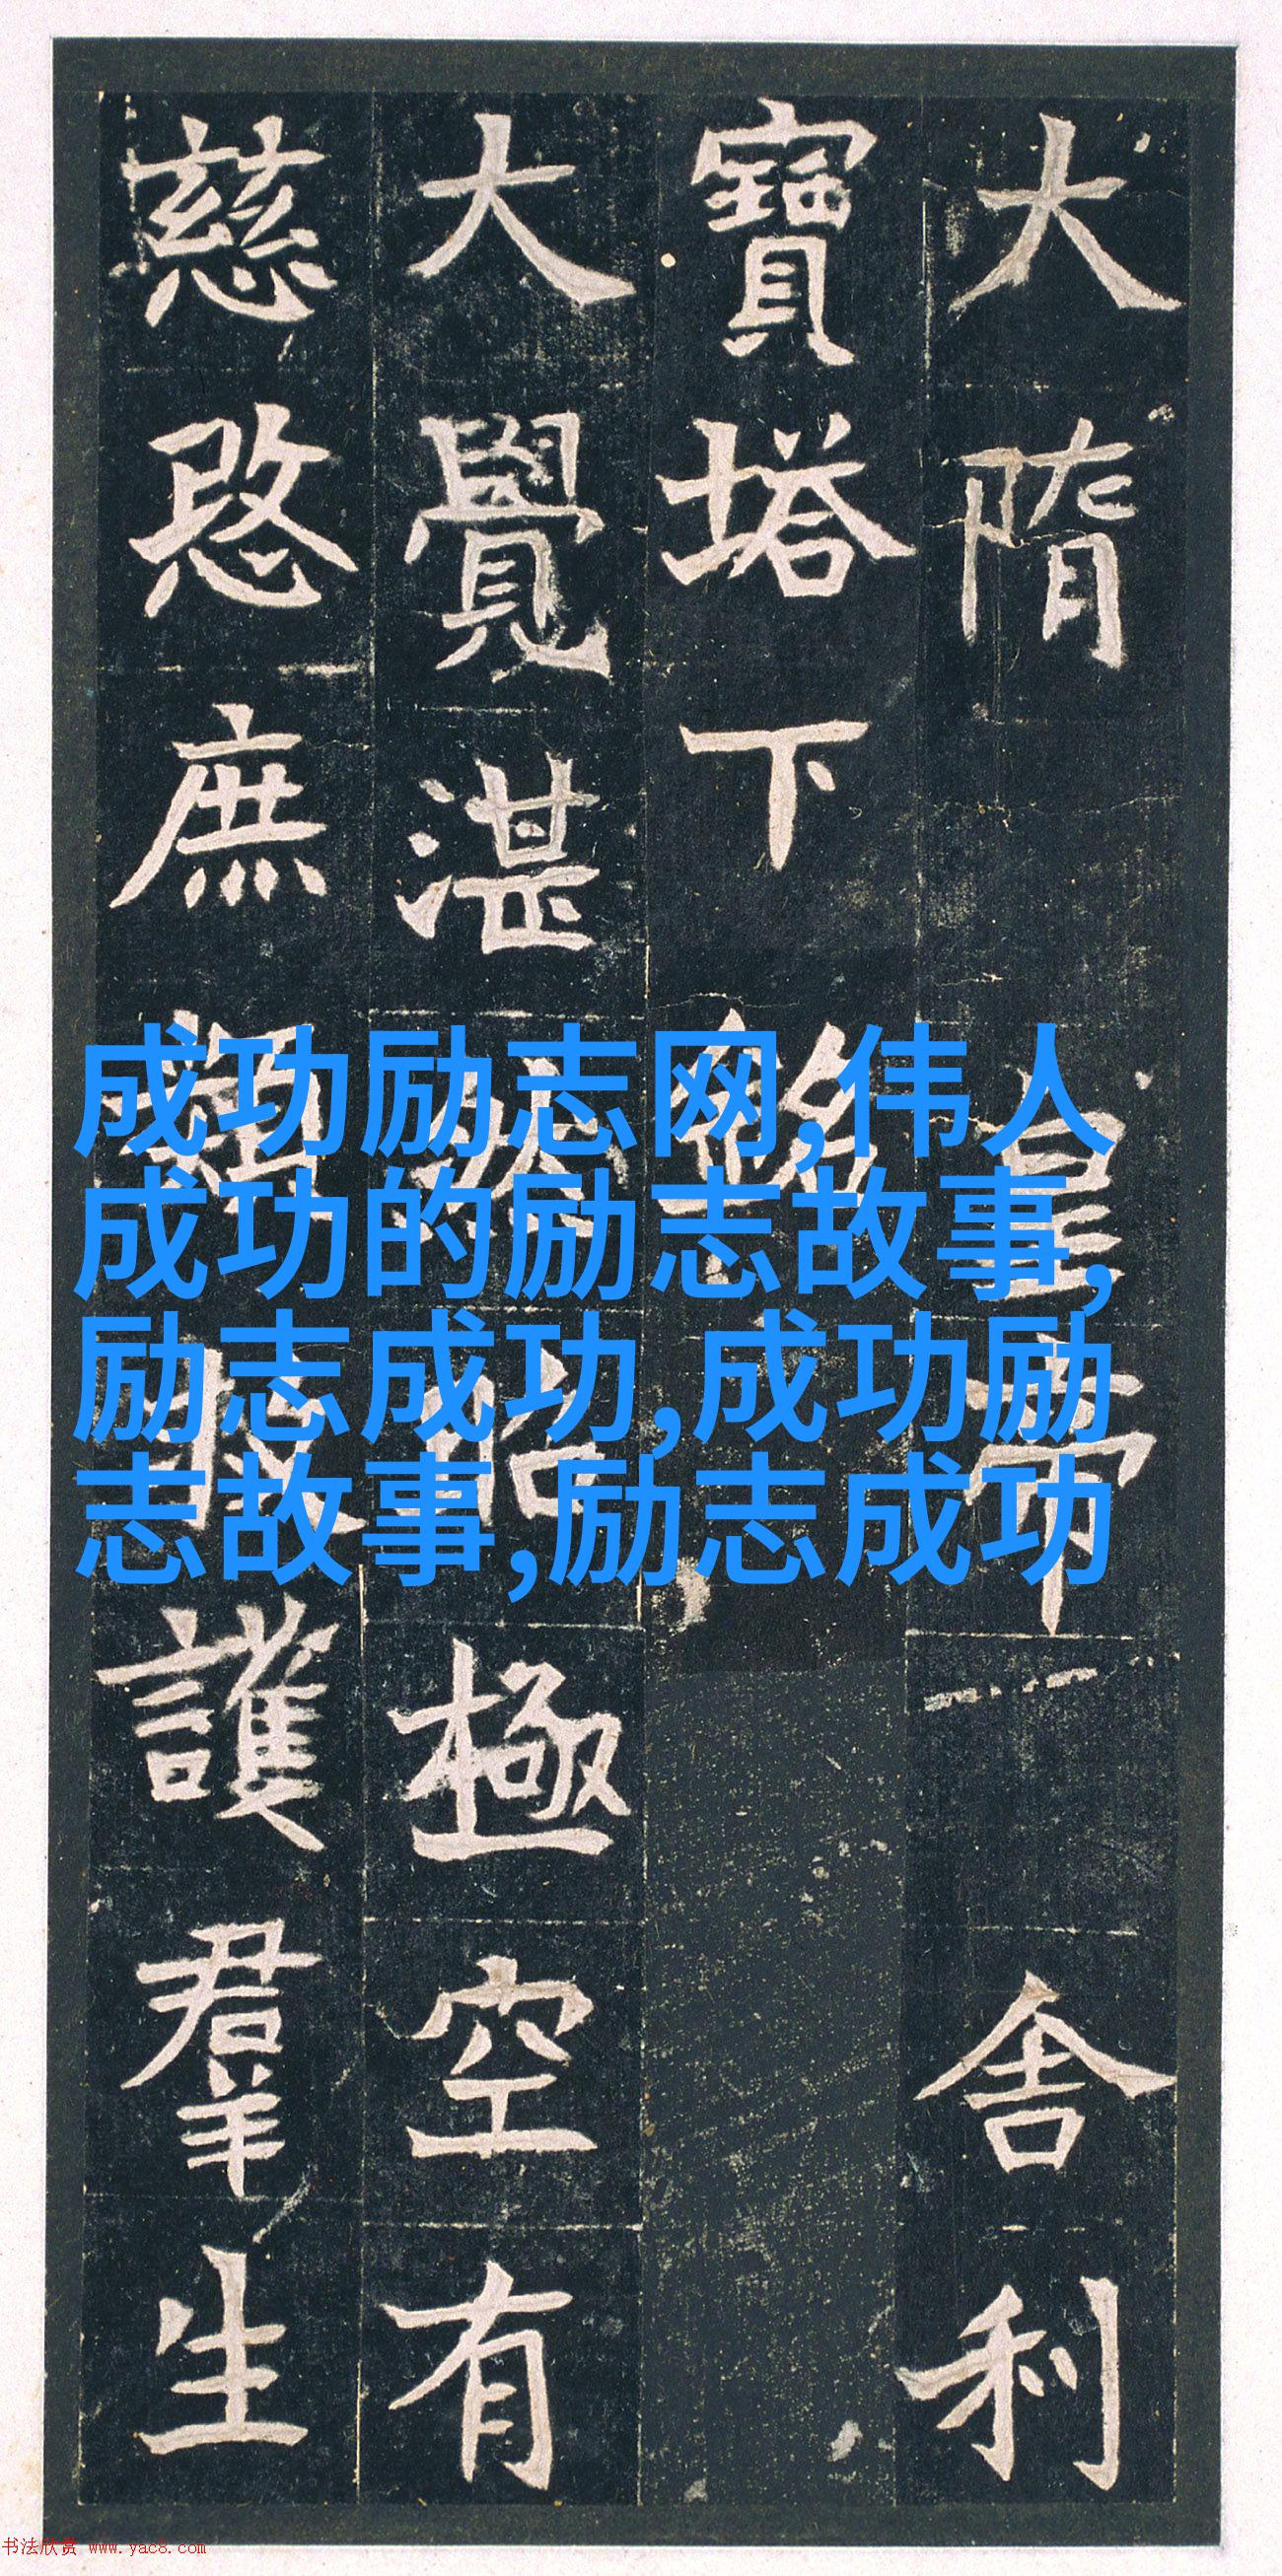 大隋皇帝舍利
寶塔下銘
大覺湛然昭極空有
慈愍庶類救護羣生
成功励志网,伟人
成功的励志故事,
励志成功,成功励
志故事,励志成功
书法欣赏 www.yac8.com